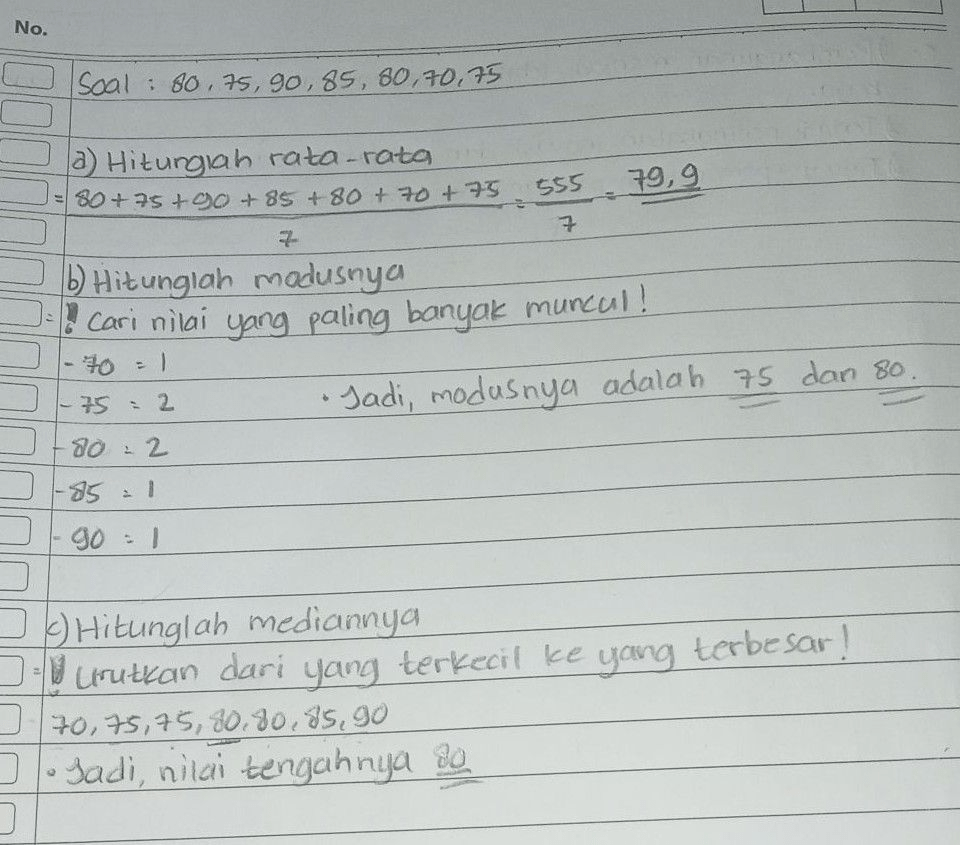 No.
Soal : 80, 75, 90, 85, 80, 70, 75
a) Hitunglah rata-rata
= 80 + 75 + 90 + 85 + 80 + 70 + 75 / 7 = 555 / 7 = 79,9
b) Hitunglah modusnya
= Cari nilai yang paling banyak muncul!
- 70 = 1
- 75 = 2 • Jadi, modusnya adalah 75 dan 80.
- 80 = 2
- 85 = 1
- 90 = 1
c) Hitunglah mediannya
= Urutkan dari yang terkecil ke yang terbesar!
70, 75, 75, 80, 80, 85, 90
• Jadi, nilai tengahnya 80